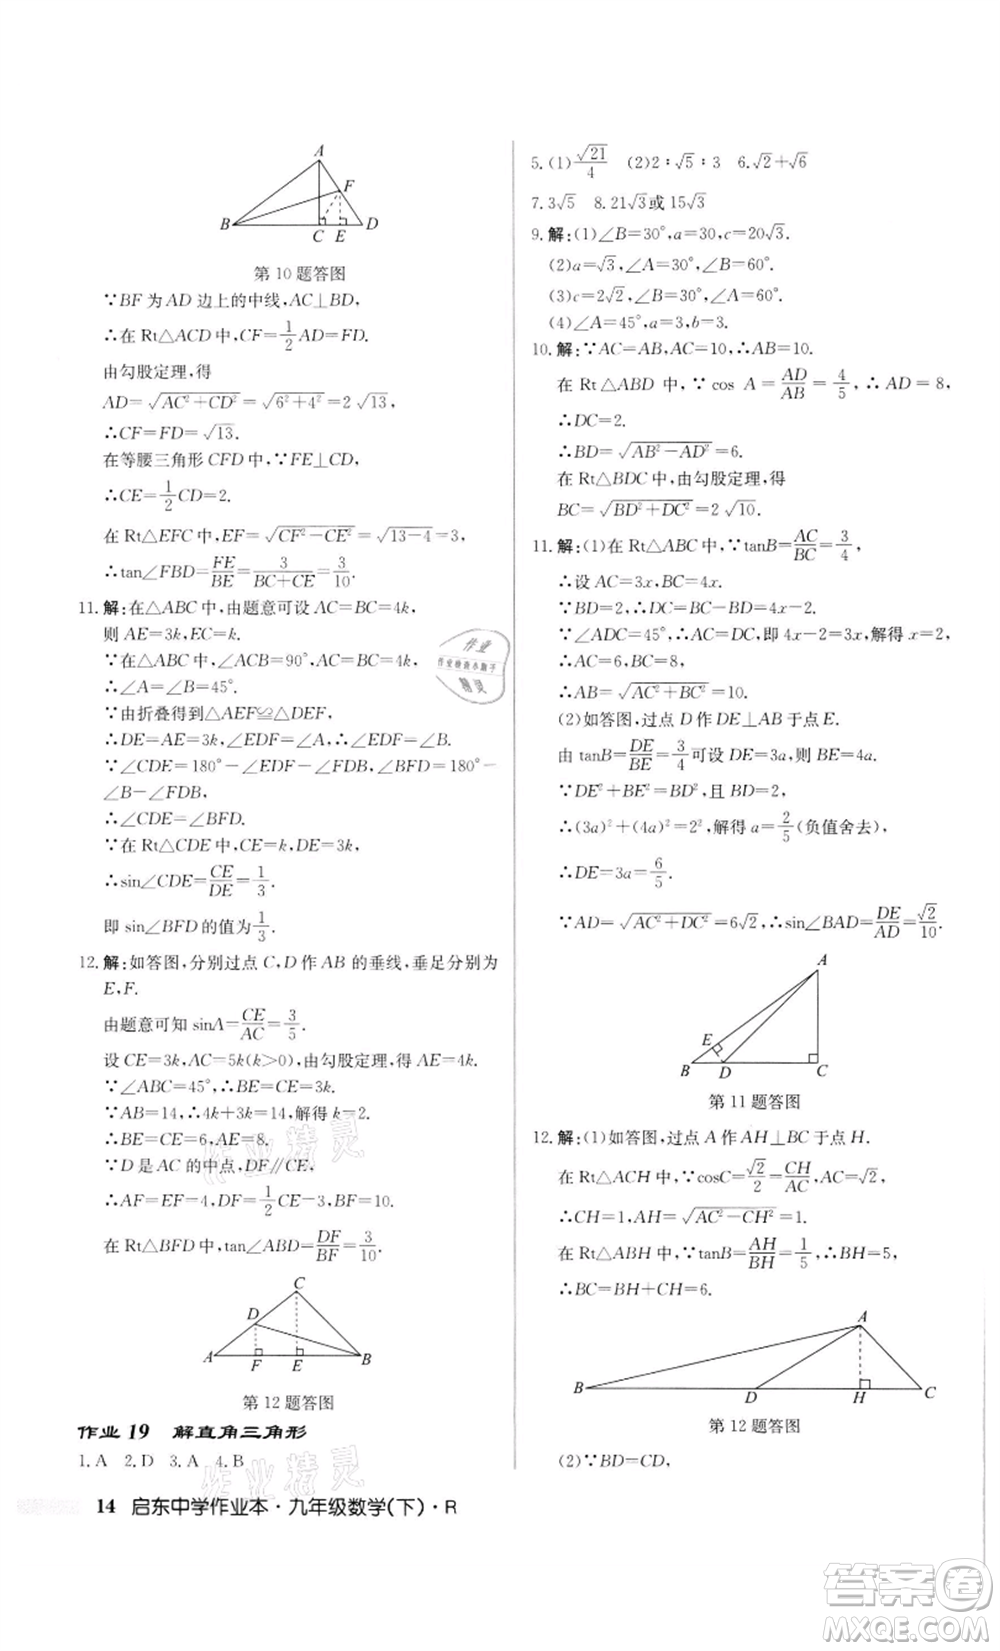 A
F
B
C
E
D
第10题答图
∵BF为AD边上的中线,AC⊥BD,
∴在Rt△ACD中,CF=1/2AD=FD.
由勾股定理,得
AD=√(AC²+CD²)=√(6²+4²)=2√13,
∴CF=FD=√13.
在等腰三角形CFD中,∵FE⊥CD,
∴CE=1/2CD=2.
在Rt△EFC中,EF=√(CF²−CE²)=√(13−4)=3,
∴tan∠FBD=FE/BE=3/(BC+CE)=3/10.
11.解:在△ABC中,由题意可设AC=BC=4k,
则AE=3k,EC=k.
∵在△ABC中,∠ACB=90°,AC=BC=4k,
∴∠A=∠B=45°.
∵由折叠得到△AEF≌△DEF,
∴DE=AE=3k,∠EDF=∠A,∴∠EDF=∠B.
∵∠CDE=180°−∠EDF−∠FDB,∠BFD=180°−
∠B−∠FDB,
∴∠CDE=∠BFD.
∵在Rt△CDE中,CE=k,DE=3k,
∴sin∠CDE=CE/DE=1/3.
即sin∠BFD的值为1/3.
12.解:如答图,分别过点C,D作AB的垂线,垂足分别为
E,F.
由题意可知sinA=CE/AC=3/5.
设CE=3k,AC=5k(k>0),由勾股定理,得AE=4k.
∵∠ABC=45°,∴BE=CE=3k.
∵AB=14,∴4k+3k=14,解得k=2.
∴BE=CE=6,AE=8.
∵D是AC的中点,DF∥CE,
∴AF=EF=4,DF=1/2CE=3,BF=10.
在Rt△BFD中,tan∠ABD=DF/BF=3/10.
C
D
A
F
E
B
第12题答图
作业19 解直角三角形
1.A 2.D 3.A 4.B
14 启东中学作业本·九年级数学(下)·R
5.(1)√21/4 (2)2∶√5∶3 6.√2+√6
7.3√5 8.21√3或15√3
9.解:(1)∠B=30°,a=30,c=20√3.
(2)a=√3,∠A=30°,∠B=60°.
(3)c=2√2,∠B=30°,∠A=60°.
(4)∠A=45°,a=3,b=3.
10.解:∵AC=AB,AC=10,∴AB=10.
在Rt△ABD中,∵cos A=AD/AB=4/5,∴AD=8,
∴DC=2.
∴BD=√(AB²−AD²)=6.
在Rt△BDC中,由勾股定理,得
BC=√(BD²+DC²)=2√10.
11.解:(1)在Rt△ABC中,∵tanB=AC/BC=3/4,
∴设AC=3x,BC=4x.
∵BD=2,∴DC=BC−BD=4x−2.
∵∠ADC=45°,∴AC=DC,即4x−2=3x,解得x=2.
∴AC=6,BC=8.
∴AB=√(AC²+BC²)=10.
(2)如答图,过点D作DE⊥AB于点E.
由tanB=DE/BE=3/4可设DE=3a,则BE=4a.
∵DE²+BE²=BD²,且BD=2,
∴(3a)²+(4a)²=2²,解得a=2/5(负值舍去),
∴DE=3a=6/5.
∵AD=√(AC²+DC²)=6√2,∴sin∠BAD=DE/AD=√2/10.
A
E
B
D
C
第11题答图
12.解:(1)如答图,过点A作AH⊥BC于点H.
在Rt△ACH中,∵cosC=√2/2=CH/AC,AC=√2,
∴CH=1,AH=√(AC²−CH²)=1.
在Rt△ABH中,∵tanB=AH/BH=1/5,∴BH=5,
∴BC=BH+CH=6.
A
B
D
H
C
第12题答图
(2)∵BD=CD,
作业
作业检查小助手
精灵
作业精灵
作业精灵
答案卷
MXQE.COM